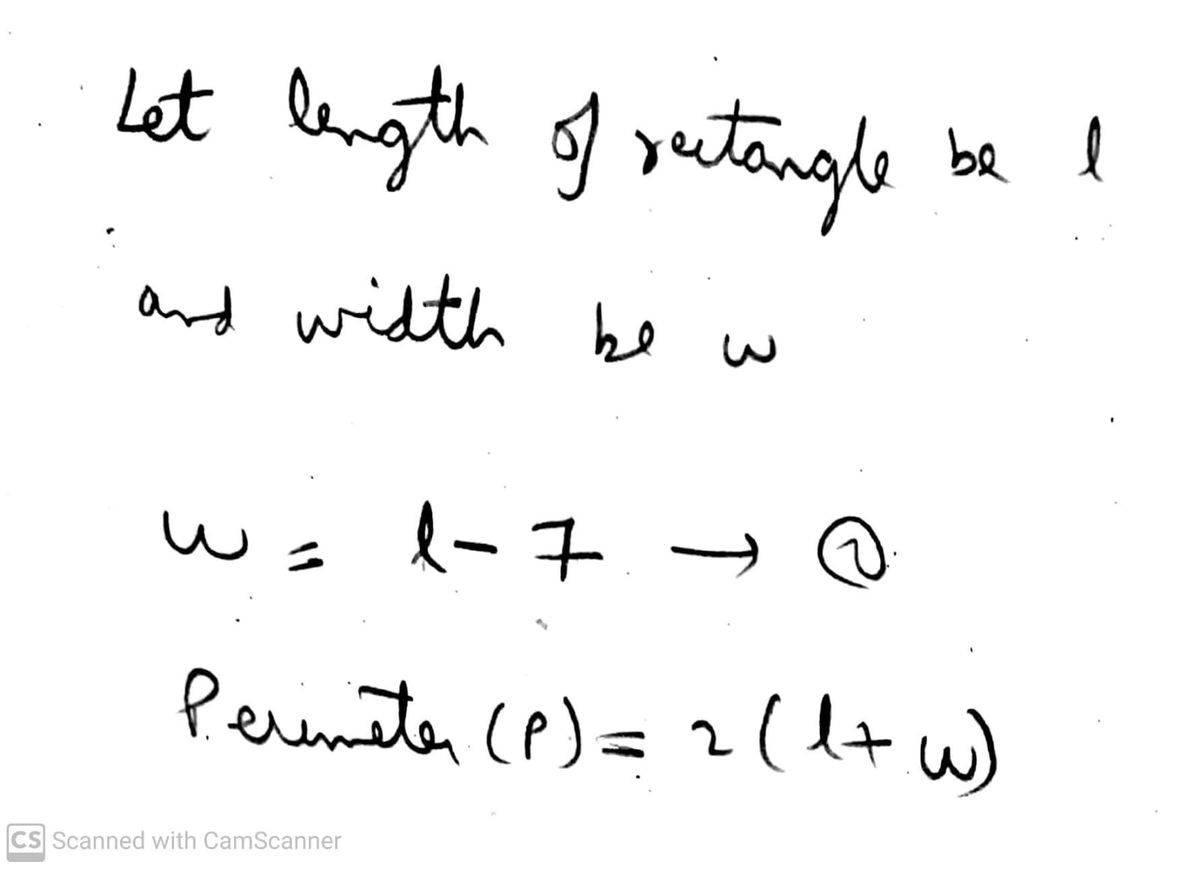 Let length of rectangle be l
and width be w
w = l - 7 → ①
Perimeter (P) = 2 (l + w)
CS Scanned with CamScanner